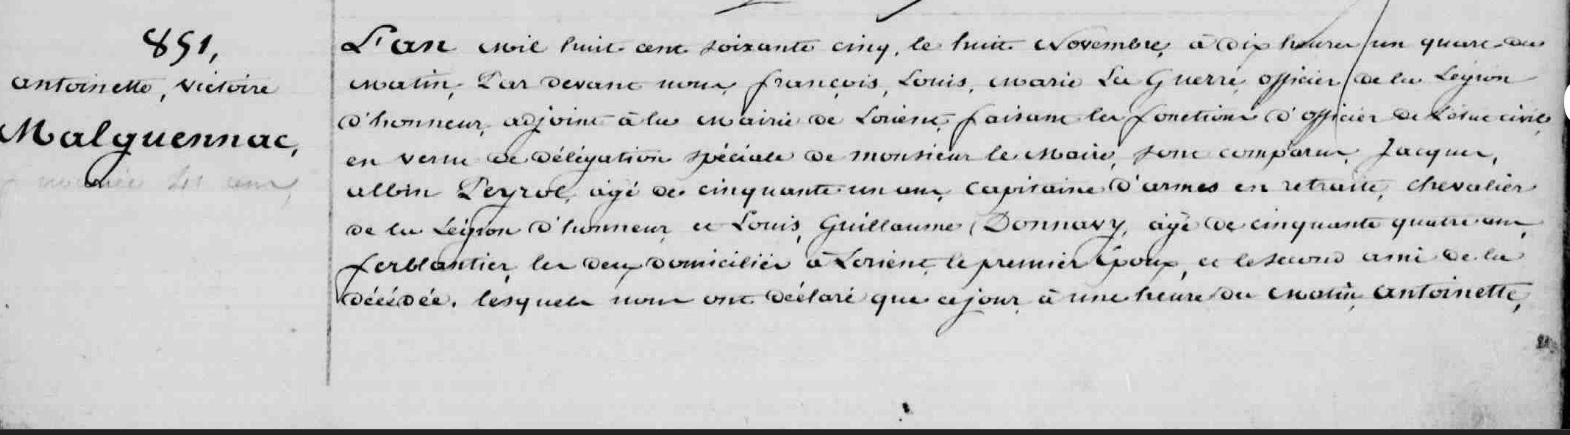 851,
Antoinette, Victoire
Malguennac,
L'an mil huit cent soixante cinq, le huit Novembre, à dix heures un quart du
matin, Par devant nous, François, Louis, Marie La Guerre, officier de la Légion
d'honneur, adjoint à la Mairie de Lorient, faisant les fonctions d'officier de l'état civil,
en vertu de délégation spéciale de monsieur le Maire, sont comparus, Jacques,
albin Peyrol, âgé de cinquante un ans, Capitaine d'armes en retraite, chevalier
de la Légion d'honneur, et Louis, Guillaume Donnavy, âgé de cinquante quatre ans,
ferblantier, les deux domiciliés à Lorient, le premier époux, et le second ami de la
décédée, lesquels nous ont déclaré que ce jour, à une heure du matin, Antoinette,